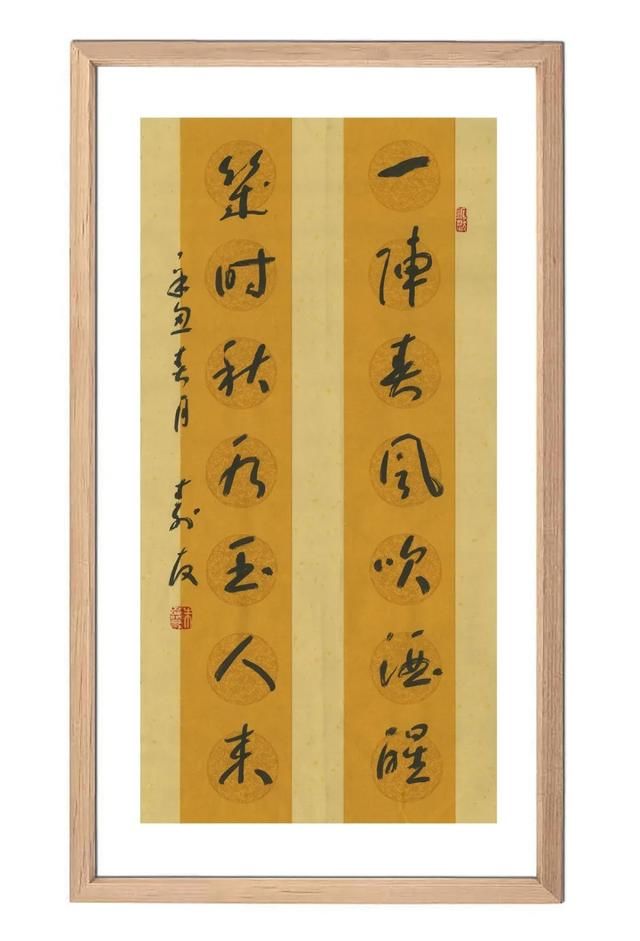 一陣春風吹酒醒
幾时秋玉人来
辛丑春月 寿友